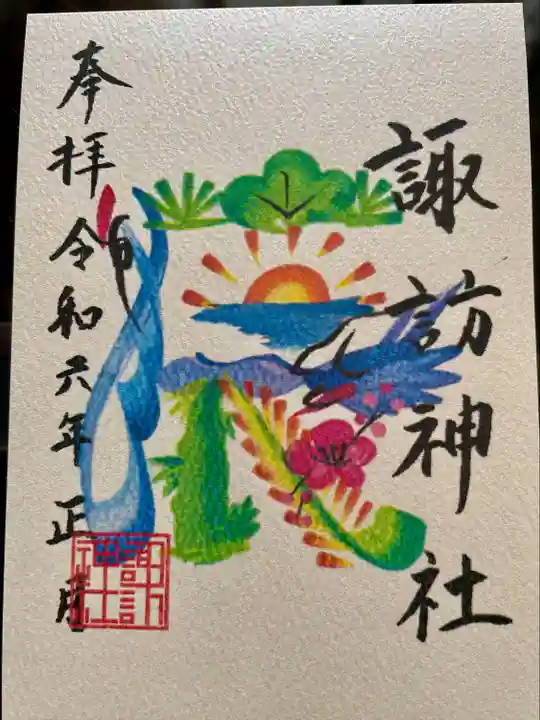 諏訪神社
奉拝 令和六年 正月
諏訪
神社